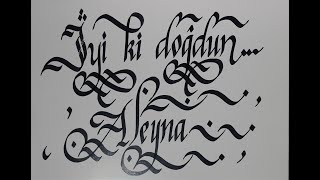 İyi ki doğdun...
Aleyna